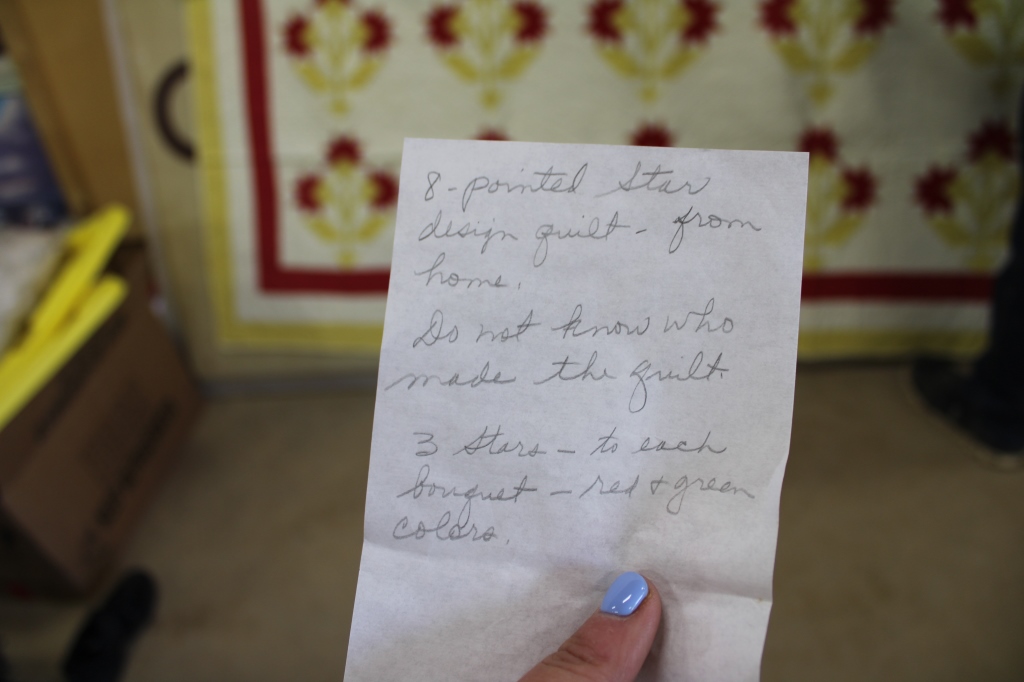 8-pointed Star
design quilt - from
home.
Do not know who
made the quilt.
3 Stars - to each
bouquet - red & green
colors.